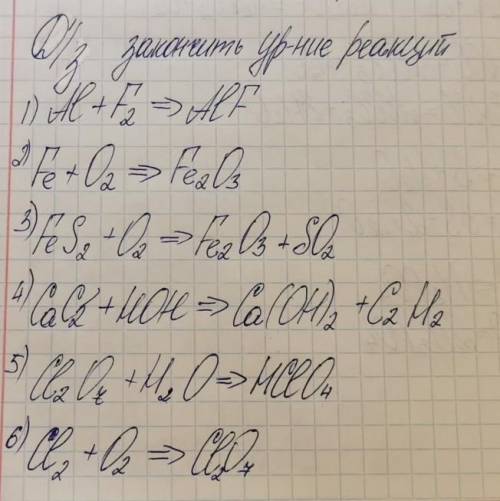 Д/з закончить ур-ние реакций
1) Al + F₂ ⇒ AlF
2) Fe + O₂ ⇒ Fe₂O₃
3) FeS₂ + O₂ ⇒ Fe₂O₃ + SO₂
4) CaC₂ + HOH ⇒ Ca(OH)₂ + C₂H₂
5) Cl₂O₇ + H₂O ⇒ HClO₄
6) Cl₂ + O₂ ⇒ Cl₂O₇